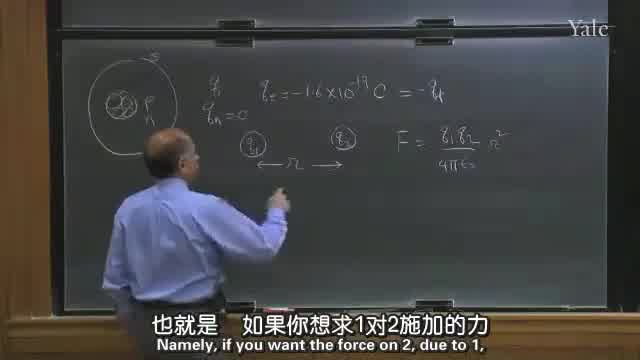 Yale
P
n
q_e = -1.6 × 10^-19 C = -q_p
q_n = 0
q_1 q_2
← r →
F = q_1 q_2 / 4πε_0 r^2
也就是 如果你想求1对2施加的力
Namely, if you want the force on 2, due to 1,